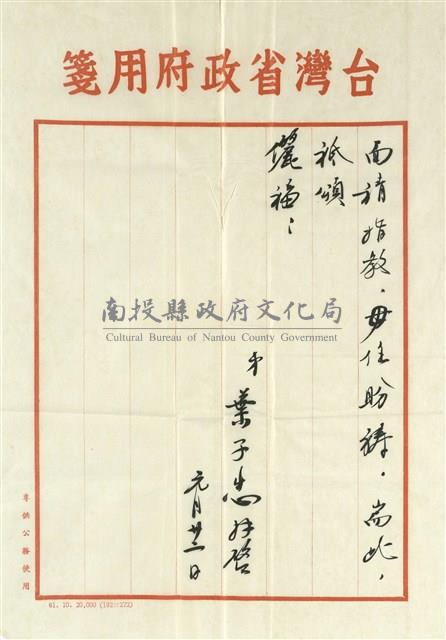 台灣省政府用箋
面請指教。毋任盼禱。耑此，
祗頌
儷福：
弟
葉子忠拜啓
元月廿二日
南投縣政府文化局
Cultural Bureau of Nantou County Government
專供公務使用
61. 10. 20,000 (192×272)